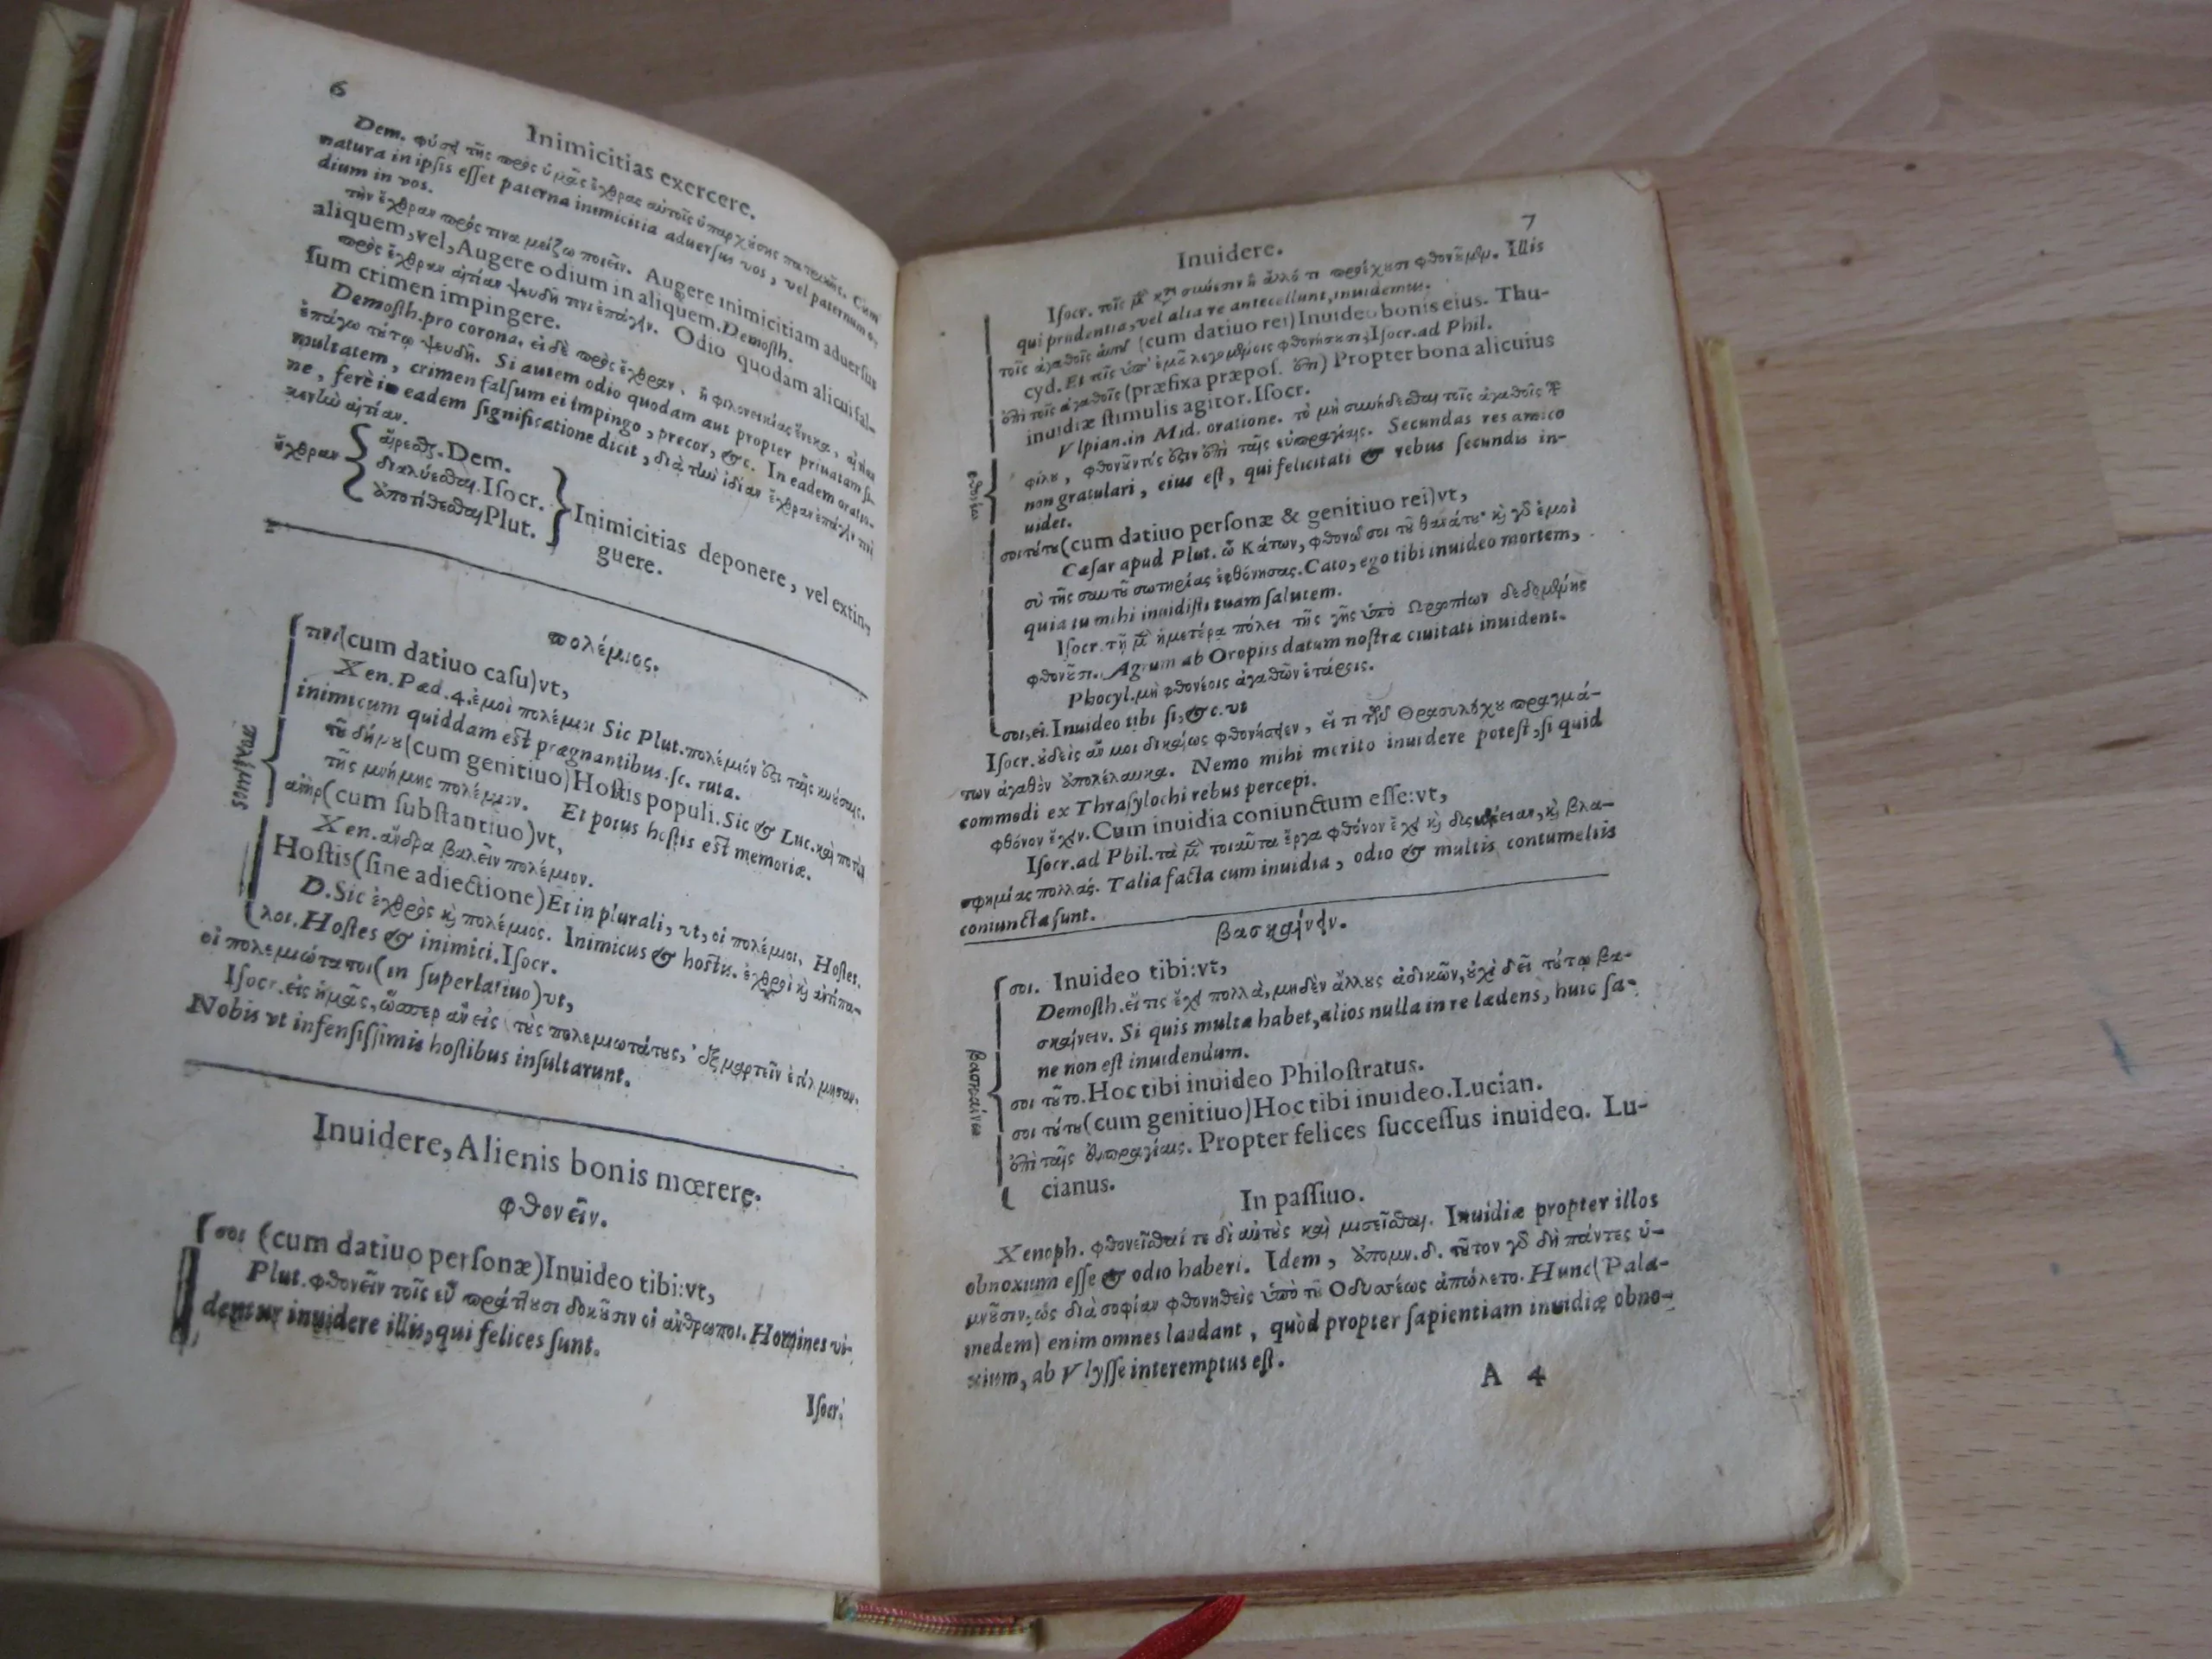 6
Inimicitias exercere.
Dem. φύσει τῆς πρὸς ὑμᾶς ἔχθρας αὐτοῖς ὑπαρχούσης πατρικῆς. Cum
natura in ipſis eſſet paterna inimicitia aduerſus vos, vel paternum o-
dium in vos.
τὴν ἔχθραν πρός τινα μείζω ποιεῖν. Augere inimicitiam aduerſus
aliquem, vel, Augere odium in aliquem. Demoſth.
πρὸς ἔχθραν αἰτίαν ψευδῆ τινι ἐπάγειν. Odio quodam alicui fal-
ſum crimen impingere.
Demoſth. pro corona. εἰ δὲ πρὸς ἔχθραν, ἢ φιλονεικίας ἕνεκα, αἰτίαν
ἐπάγω τούτῳ ψευδῆ. Si autem odio quodam aut propter priuatam ſi-
multatem, crimen falſum ei impingo, precor, &c. In eadem oratio-
ne, ferè in eadem ſignificatione dicit, διὰ τὴν ἰδίαν ἔχθραν ἐπάγειν
κενὴν αἰτίαν.
ἔχθραν
Dem.
διαλύεσθαι. Iſocr.
ἀποτίθεσθαι Plut.
Inimicitias deponere, vel extin-
guere.
πολέμιος.
πολέμιος
τινὶ (cum datiuo caſu) vt,
Xen. Pæd. 4. ἐμοὶ πολέμιοι Sic Plut. πολέμιόν ἐστι ταῖς κυούσαις.
inimicum quiddam eſt prægnantibus. ſc. ruta.
τοῦ δήμου (cum genitiuo) Hoſtis populi. Sic & Luc.
τῆς μνήμης πολέμιον. Et potus hoſtis eſt memoriæ.
ἀνὴρ (cum ſubſtantiuo) vt,
Xen. ἄνδρα βαλεῖν πολέμιον.
Hoſtis (ſine adiectione) Et in plurali, vt, οἱ πολέμιοι, Hoſtes.
D. Sic ἐχθρὸς καὶ πολέμιος. Inimicus & hoſtis. ἐχθροὶ καὶ ἀντίπα-
λοι. Hoſtes & inimici. Iſocr.
οἱ πολεμιώτατοι (in ſuperlatiuo) vt,
Iſocr. εἰς ἡμᾶς, ὥσπερ ἂν εἰς τοὺς πολεμιωτάτους, ἐξαμαρτεῖν ἐτόλμησαν.
Nobis vt infenſiſſimis hoſtibus inſultarunt.
Inuidere, Alienis bonis mœrere.
φθονεῖν.
σοι (cum datiuo perſonæ) Inuideo tibi: vt,
Plut. φθονεῖν τοῖς εὖ πράττουσι δοκοῦσιν οἱ ἄνθρωποι. Homines vi-
dentur inuidere illis, qui felices ſunt.
Iſocr.
7
Inuidere.
φθονέω
Iſocr. τοῖς μὲν κατὰ σύνεσιν ἢ ἄλλό τι προέχουσι φθονοῦμεν. Illis
qui prudentia, vel alia re antecellunt, inuidemus.
τοῖς ἀγαθοῖς αὐτοῦ (cum datiuo rei) Inuideo bonis eius. Thu-
cyd. Et τοῖς ὑπ' ἐμοῦ λεγομένοις φθονήσουσι, Iſocr. ad Phil.
ἐπὶ τοῖς ἀγαθοῖς (præfixa præpoſ. ἐπὶ) Propter bona alicuius
inuidiæ ſtimulis agitor. Iſocr.
Vlpian. in Mid. oratione. τὸ μὴ συνήδεσθαι τοῖς ἀγαθοῖς τοῦ
φίλου, φθονοῦντός ἐστιν ἐπὶ ταῖς εὐπραγίαις. Secundas res amico
non gratulari, eius eſt, qui felicitati & rebus ſecundis in-
uidet.
σοι τούτου (cum datiuo perſonæ & genitiuo rei) vt,
Cæſar apud Plut. ὦ Κάτων, φθονῶ σοι τοῦ θανάτου· καὶ γὰρ ἐμοὶ
σὺ τῆς σαυτοῦ σωτηρίας ἐφθόνησας. Cato, ego tibi inuideo mortem,
quia tu mihi inuidiſti tuam ſalutem.
Iſocr. τῇ μὲν ἡμετέρᾳ πόλει τῆς γῆς ὑπὸ Ὠρωπίων δεδομένης
φθονοῦσι. Agrum ab Oropiis datum noſtræ ciuitati inuident.
Phocyl. μὴ φθονέοις ἀγαθῶν ἑτάροις.
σοι, εἰ. Inuideo tibi ſi, &c. vt
Iſocr. οὐδεὶς ἄν μοι δικαίως φθονήσειεν, εἴ τι τῶν Θρασυλόχου πραγμά-
των ἀγαθὸν ἀπολέλαυκα. Nemo mihi merito inuidere poteſt, ſi quid
commodi ex Thraſylochi rebus percepi.
φθόνον ἔχειν. Cum inuidia coniunctum eſſe: vt,
Iſocr. ad Phil. τὰ μὲν τοιαῦτα ἔργα φθόνον ἔχει καὶ δυσμένειαν, καὶ βλα-
σφημίας πολλάς. Talia facta cum inuidia, odio & multis contumeliis
coniuncta ſunt.
βασκαίνειν.
βασκαίνω
σοι. Inuideo tibi: vt,
Demoſth. εἴ τις ἔχει πολλὰ, μηδὲν ἄλλους ἀδικῶν, οὐχὶ δεῖ τούτῳ βα-
σκαίνειν. Si quis multa habet, alios nulla in re lædens, huic ſa-
ne non eſt inuidendum.
σοι τοῦτο. Hoc tibi inuideo Philoſtratus.
σοι τούτου (cum genitiuo) Hoc tibi inuideo. Lucian.
ἐπὶ ταῖς εὐπραγίαις. Propter felices ſucceſſus inuideo. Lu-
cianus.
In paſſiuo.
Xenoph. φθονεῖσθαί τε δι' αὐτοὺς καὶ μισεῖσθαι. Inuidiæ propter illos
obnoxium eſſe & odio haberi. Idem, ἀπομν. δ. τοῦτον γὰρ δὴ πάντες ὑ-
μνοῦσιν, ὡς διὰ σοφίαν φθονηθεὶς ὑπὸ τοῦ Ὀδυσσέως ἀπώλετο. Hunc (Pala-
medem) enim omnes laudant, quòd propter ſapientiam inuidiæ obno-
xium, ab Vlyſſe interemptus eſt.
A 4